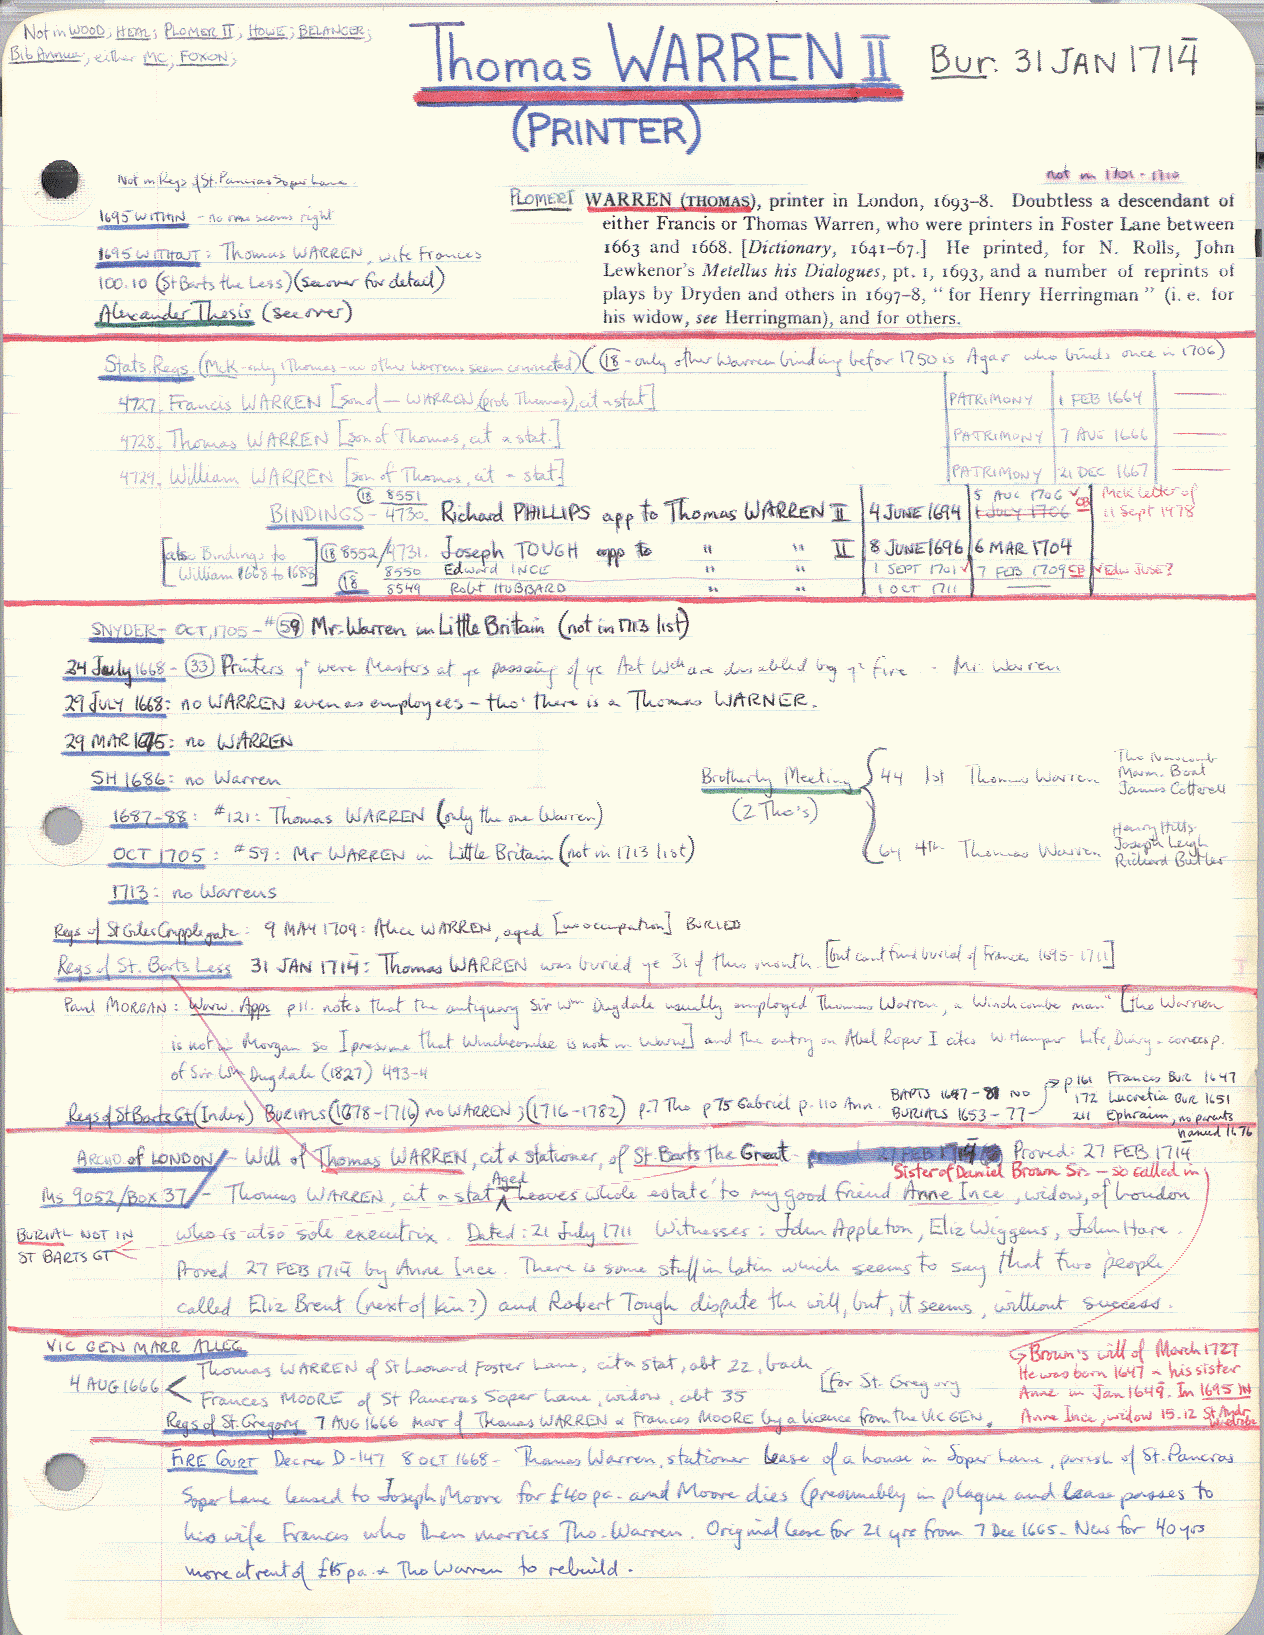 Not in WOOD; HEAL; PLOMER II; HOWE; BELANGER;
Bib Annual; either MC; FOXON;
Thomas WARREN II Bur. 31 JAN 1714
(PRINTER)
Not in Regs of St. Pancras Soper Lane
not in 1701-1710
1695 WITHIN - no one seems right
1695 WITHOUT: Thomas WARREN, wife Frances
100.10 (St Barts the Less) (see over for detail)
Alexander Thesis (see over)
PLOMER I WARREN (THOMAS), printer in London, 1693–8. Doubtless a descendant of
either Francis or Thomas Warren, who were printers in Foster Lane between
1663 and 1668. [Dictionary, 1641–67.] He printed, for N. Rolls, John
Lewkenor's Metellus his Dialogues, pt. 1, 1693, and a number of reprints of
plays by Dryden and others in 1697–8, “ for Henry Herringman ” (i. e. for
his widow, see Herringman), and for others.
Stats. Regs. (McK - only 1 Thomas - no other Warrens seem connected) (18 - only other Warren binding before 1750 is Agar who binds once in 1706)
4727. Francis WARREN [son of — WARREN (prob Thomas), cit & stat] PATRIMONY 1 FEB 1664 —
4728. Thomas WARREN [son of Thomas, cit & stat.] PATRIMONY 7 AUG 1666 —
4729. William WARREN [son of Thomas, cit & stat] PATRIMONY 21 DEC 1667 —
BINDINGS - 18 8551 4730. Richard PHILLIPS app to Thomas WARREN II 4 JUNE 1694 5 AUG 1706 ✓CB 1 JULY 1706 McK letter of 11 Sept 1978
[also Bindings to William 1668 to 1688] 18 8552/4731. Joseph TOUGH app to " " II 8 JUNE 1696 6 MAR 1704
8550 Edward INCE " " 1 SEPT 1701 ✓ 7 FEB 1709 CB ✓ Edw JUSE?
18 8549 Robt HUBBARD " " 1 OCT 1711 —
SNYDER - OCT, 1705 - #59 Mr. Warren in Little Britain (not in 1713 list)
24 July 1668 - 33 Printers yt were Masters at ye passing of ye Act wch are disabled by ye fire - Mr. Warren
29 JULY 1668: no WARREN even as employees - tho' there is a Thomas WARNER.
29 MAR 1675: no WARREN
SH 1686: no Warren
Brotherly Meeting (2 Tho's)
44 1st Thomas Warren
Marm. Boat
James Cotterell
64 4th Thomas Warren
Henry Hills
Joseph Leigh
Richard Butler
1687-88: #121: Thomas WARREN (only the one Warren)
OCT 1705: #59: Mr WARREN in Little Britain (not in 1713 list)
1713: no Warrens
Regs of St Giles Cripplegate: 9 MAY 1709: Alice WARREN, aged [no occupation] BURIED
Regs of St. Barts Less 31 JAN 1714: Thomas WARREN was buried ye 31 of this month. [but cant find burial of Frances 1695-1711]
Paul MORGAN: Warw. Apps p11. notes that the antiquary Sir Wm Dugdale usually employed "Thomas Warren, a Winchcombe man" [tho Warren
is not in Morgan so I presume that Winchcombe is not in Warw] and the entry on Abel Roper I cites W. Hamper Life, Diary & corresp.
of Sir Wm Dugdale (1827) 493-4
Regs of St Barts Gt (Index) BURIALS (1678-1716) no WARREN; (1716-1782) p.7 Tho p75 Gabriel p.110 Ann.
BAPTS 1647-81 NO
BURIALS 1653-77
p161 Frances Bur 1647
172 Lucretia Bur 1651
211 Ephraim, no parents named 1676
ARCHD of LONDON - Will of Thomas WARREN, cit & stationer, of St. Barts the Great - Proved: 27 FEB 1714
Sister of Daniel Brown Sr. - so called in
Ms 9052/Box 37 - Thomas WARREN, cit & stat Aged leaves whole estate 'to my good friend Anne Ince, widow, of London
who is also sole executrix. Dated: 21 July 1711 Witnesses: John Appleton, Eliz Wiggens, John Hare.
BURIAL NOT IN
ST BARTS GT
Proved 27 FEB 1714 by Anne Ince. There is some stuff in latin which seems to say that two people
called Eliz Brent (next of kin?) and Robert Tough dispute the will, but, it seems, without success.
VIC GEN MARR ALLEG
4 AUG 1666 < Thomas WARREN of St Leonard Foster Lane, cit & stat, abt 22, bach
Frances MOORE of St Pancras Soper Lane, widow, abt 35
[for St. Gregory
Regs of St. Gregory 7 AUG 1666 Marr of Thomas WARREN & Frances MOORE by a licence from the VIC GEN.
Brown's will of March 1727
He was born 1647 - his sister
Anne in Jan 1649. In 1695 IN
Anne Ince, widow 15.12 St Andr Wardrobe
FIRE COURT Decree D-147 8 OCT 1668 - Thomas Warren, stationer lease of a house in Soper Lane, parish of St. Pancras
Soper Lane leased to Joseph Moore for £40 pa. and Moore dies (presumably in plague and lease passes to
his wife Frances who then marries Tho. Warren. Original lease for 21 yrs from 7 Dec 1665 - New for 40 yrs
more at rent of £15 pa. & Tho Warren to rebuild.